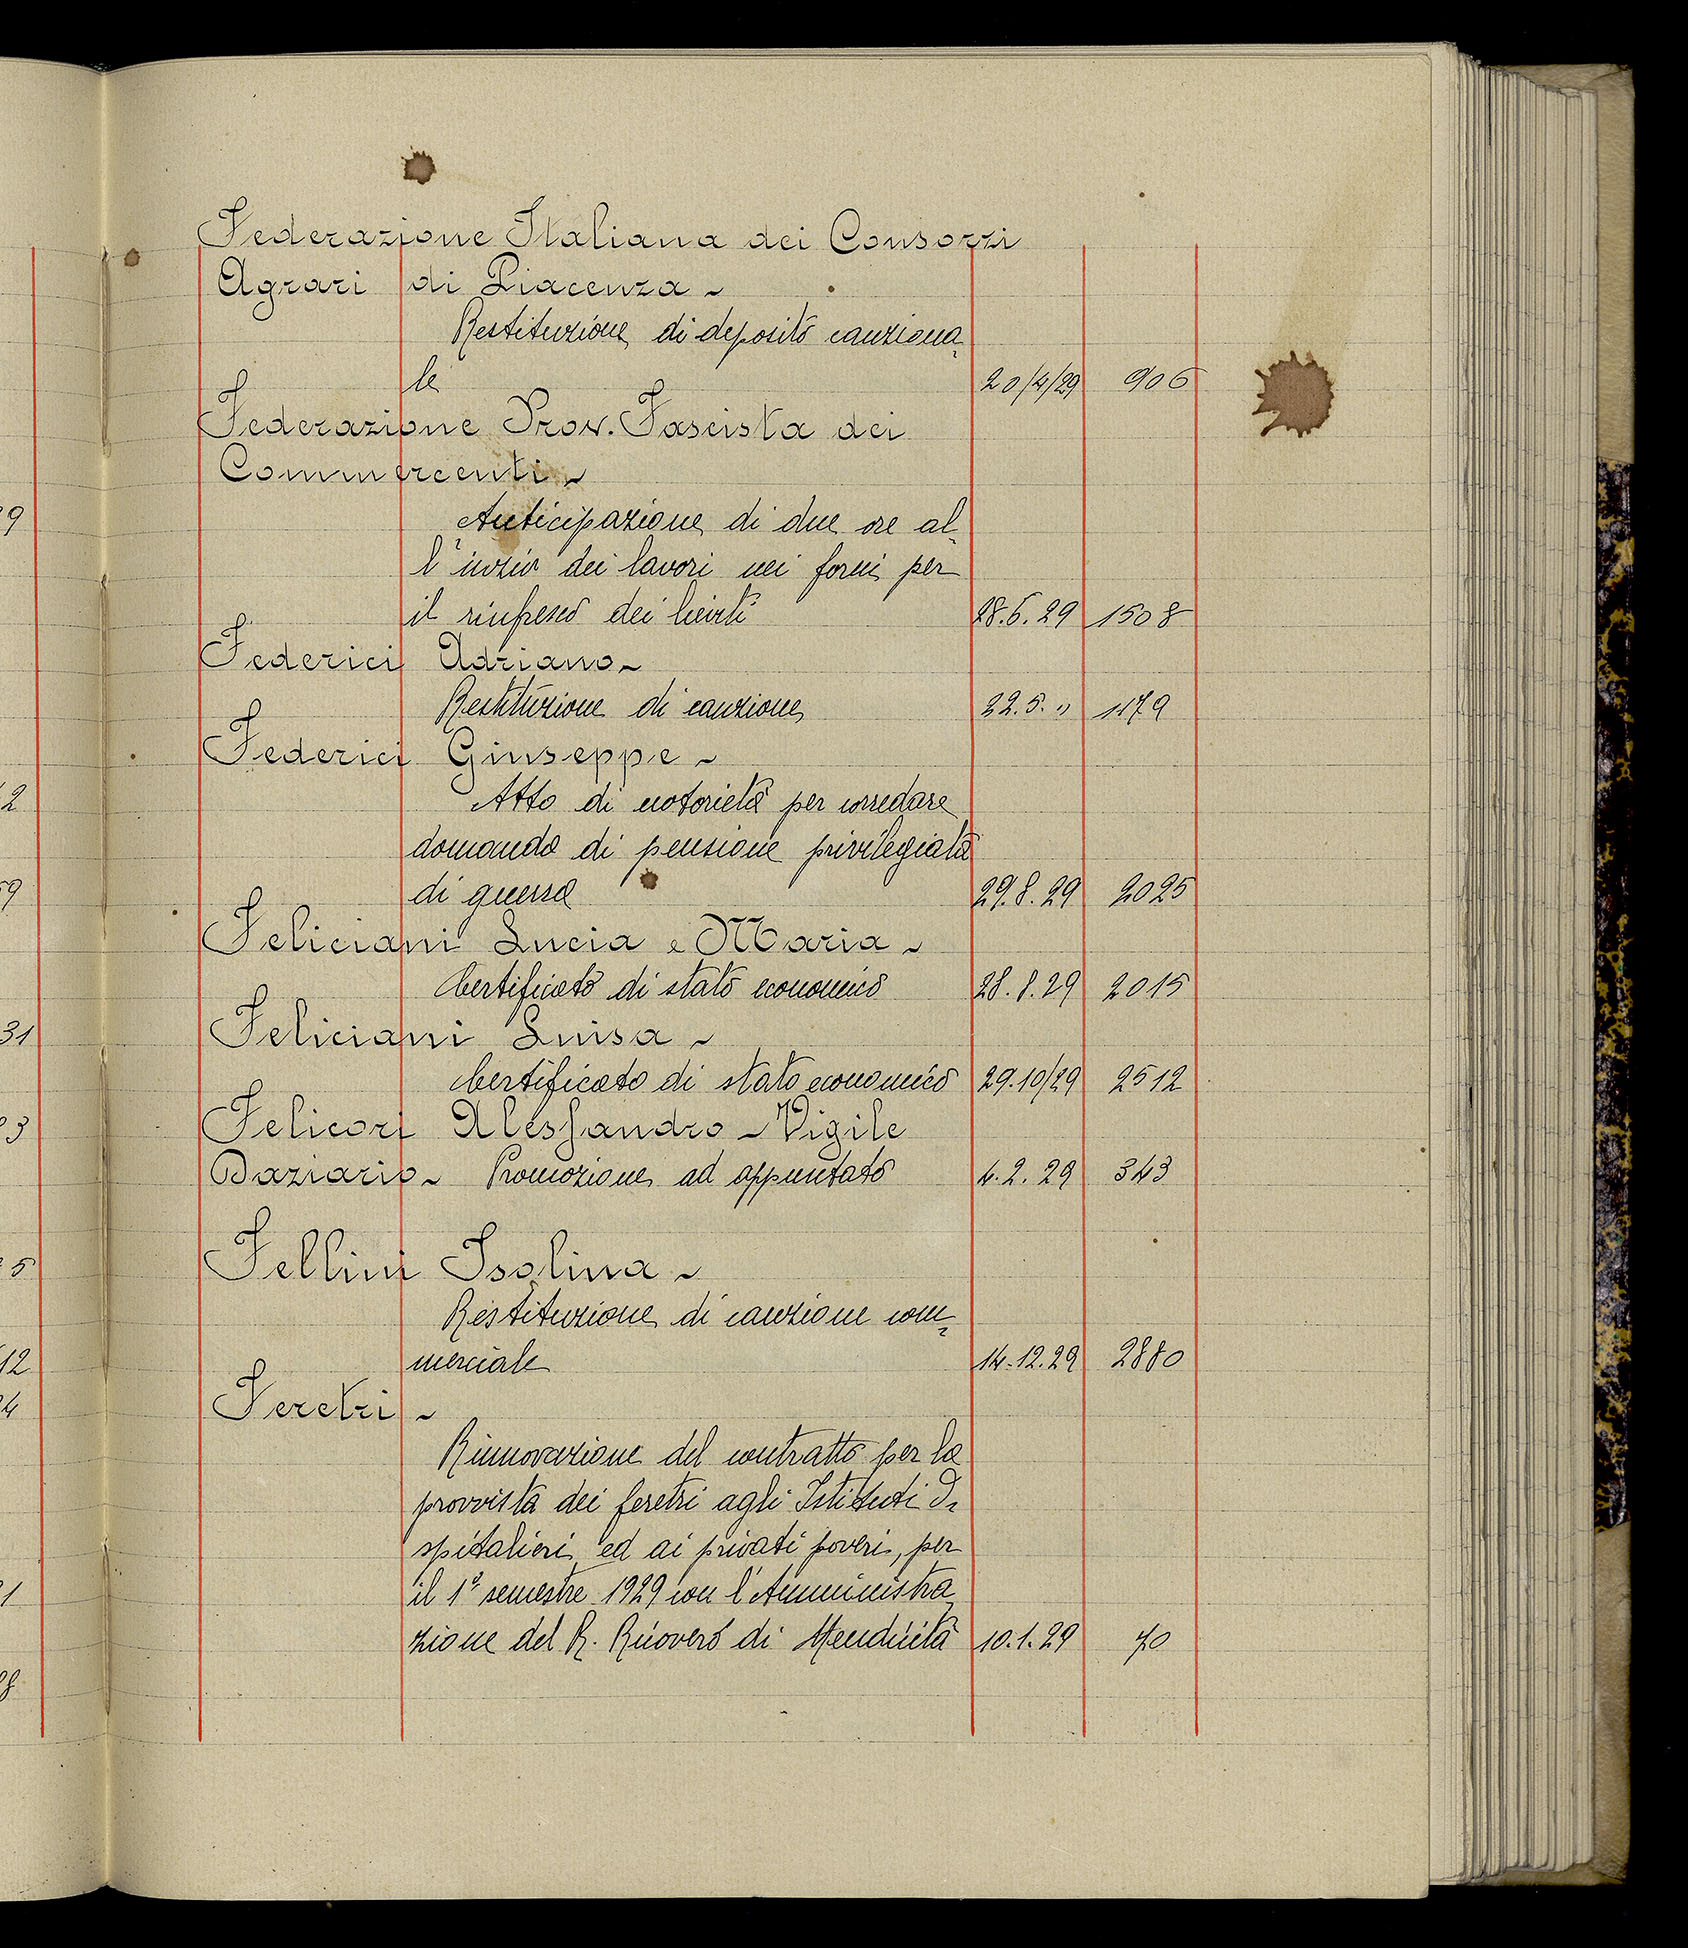 Federazione Italiana dei Consorzi
Agrari di Piacenza ~
Restituzione di deposito cauziona-
le 20/4/29 906
Federazione Prov. Fascista dei
Commercenti ~
Anticipazione di due ore al-
l'inizio dei lavori nei forni per
il rinfresco dei lieviti 28.6.29 1508
Federici Adriano ~
Restituzione di cauzione 22.5. " 1179
Federici Giuseppe ~
Atto di notorietà per corredare
domanda di pensione privilegiata
di guerra 29.8.29 2025
Feliciani Lucia e Maria ~
Certificato di stato economico 28.8.29 2015
Feliciani Luisa ~
Certificato di stato economico 29.10/29 2512
Felicori Alessandro ~ Vigile
Daziario ~ Promozione ad appuntato 4.2.29 343
Fellini Isolina ~
Restituzione di cauzione com-
merciale 14.12.29 2880
Feretri ~
Rinnovazione del contratto per la
provvista dei feretri agli Istituti O-
spitalieri ed ai privati poveri, per
il 1° semestre 1929 con l'Amministra-
zione del R. Ricovero di Mendicità 10.1.29 70
9
2
59
31
3
5
12
4
1
8